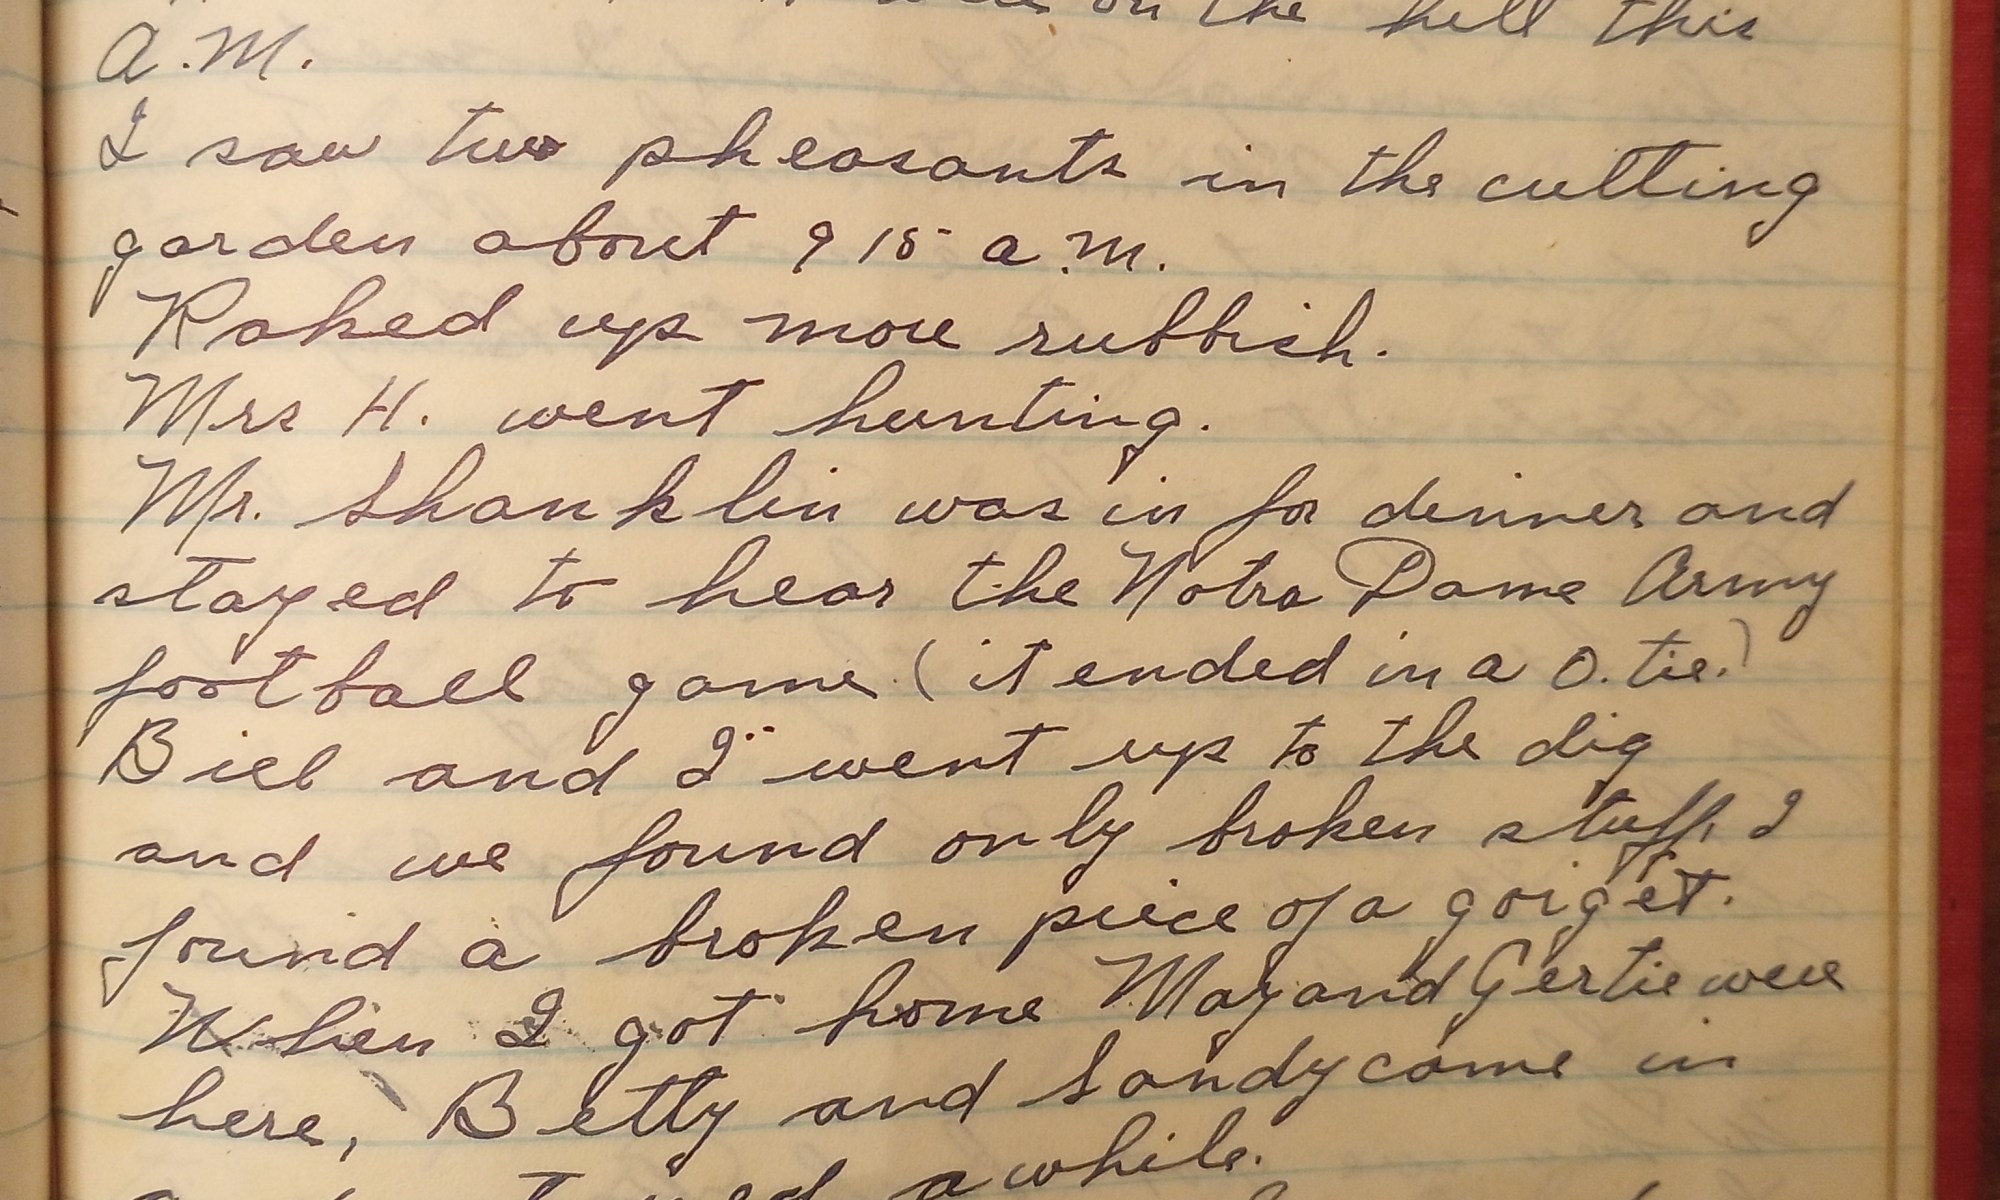 on the hill this
A.M.
I saw two pheasants in the cutting
garden about 9 15 a.m.
Raked up more rubbish.
Mrs H. went hunting.
Mr. Shanklin was in for dinner and
stayed to hear the Notre Dame Army
football game (it ended in a 0. tie.)
Bill and I went up to the dig
and we found only broken stuff. I
found a broken piece of a gorget.
When I got home May and Gertie were
here, Betty and Sandy come in
awhile.